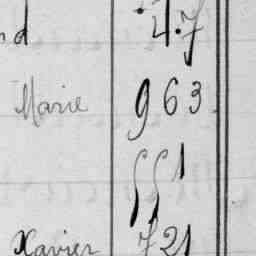 d 47
Marie 963
551
Xavier 721